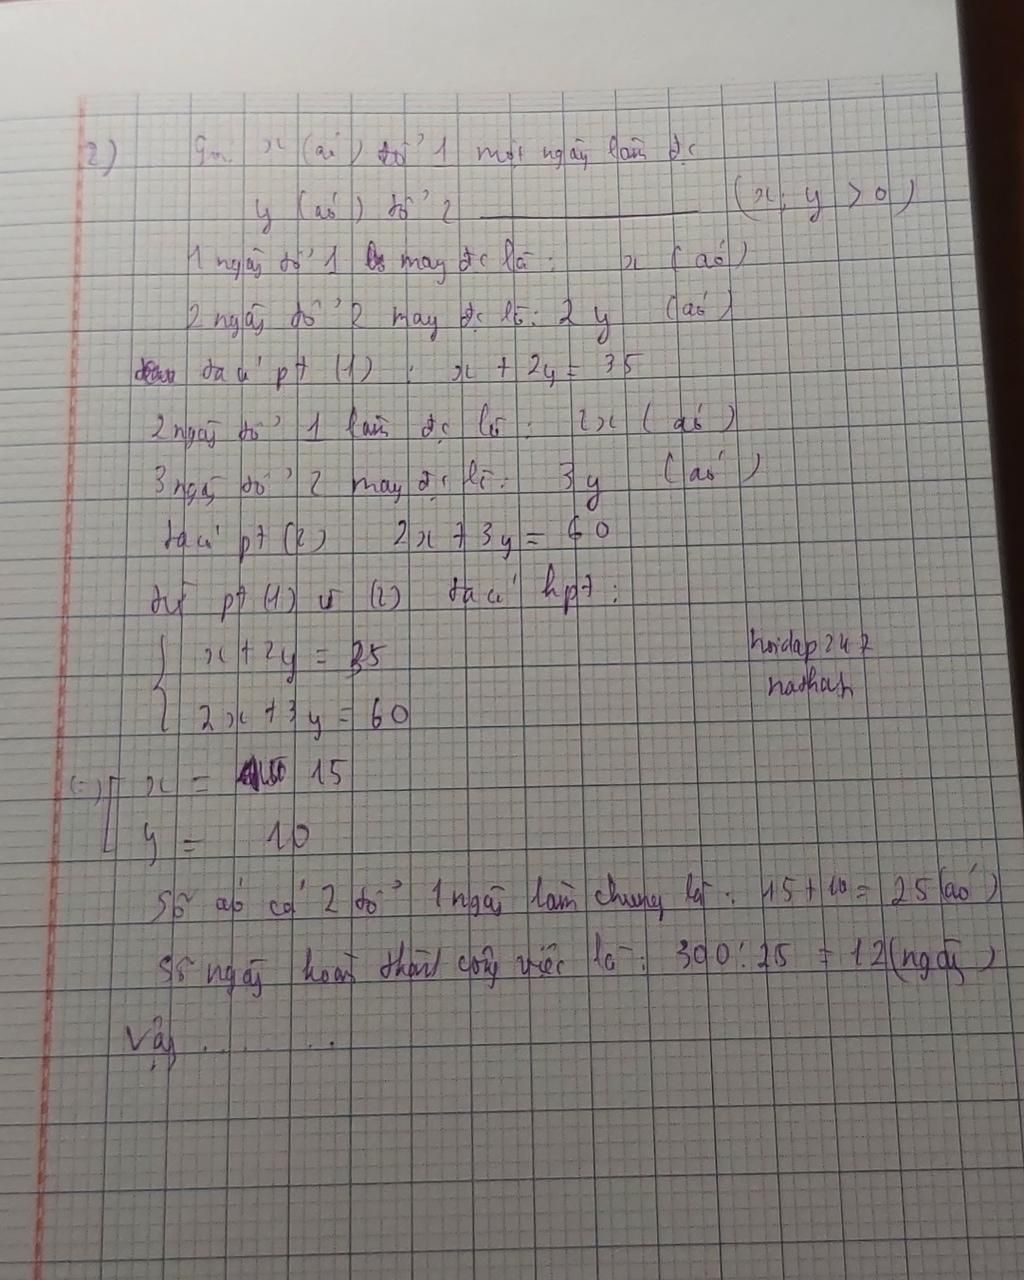 2) Gọi x (áo) tổ 1 một ngày làm đc
y (áo) tổ 2 ——— (x, y > 0)
1 ngày tổ 1 may đc là: x (áo)
2 ngày tổ 2 may đc là: 2y (áo)
ta có pt (1) : x + 2y = 35
2 ngày tổ 1 làm đc là: 2x (áo)
3 ngày tổ 2 may đc là: 3y (áo)
ta có pt (2) 2x + 3y = 60
từ pt (1) và (2) ta có hpt:
x + 2y = 35
hoidap247
2x + 3y = 60
nathan
(=) x = 15
y = 10
Số áo cả 2 tổ 1 ngày làm chung là: 15 + 10 = 25 (áo)
Số ngày hoàn thành công việc là: 300 : 25 = 12 (ngày)
Vậy .........